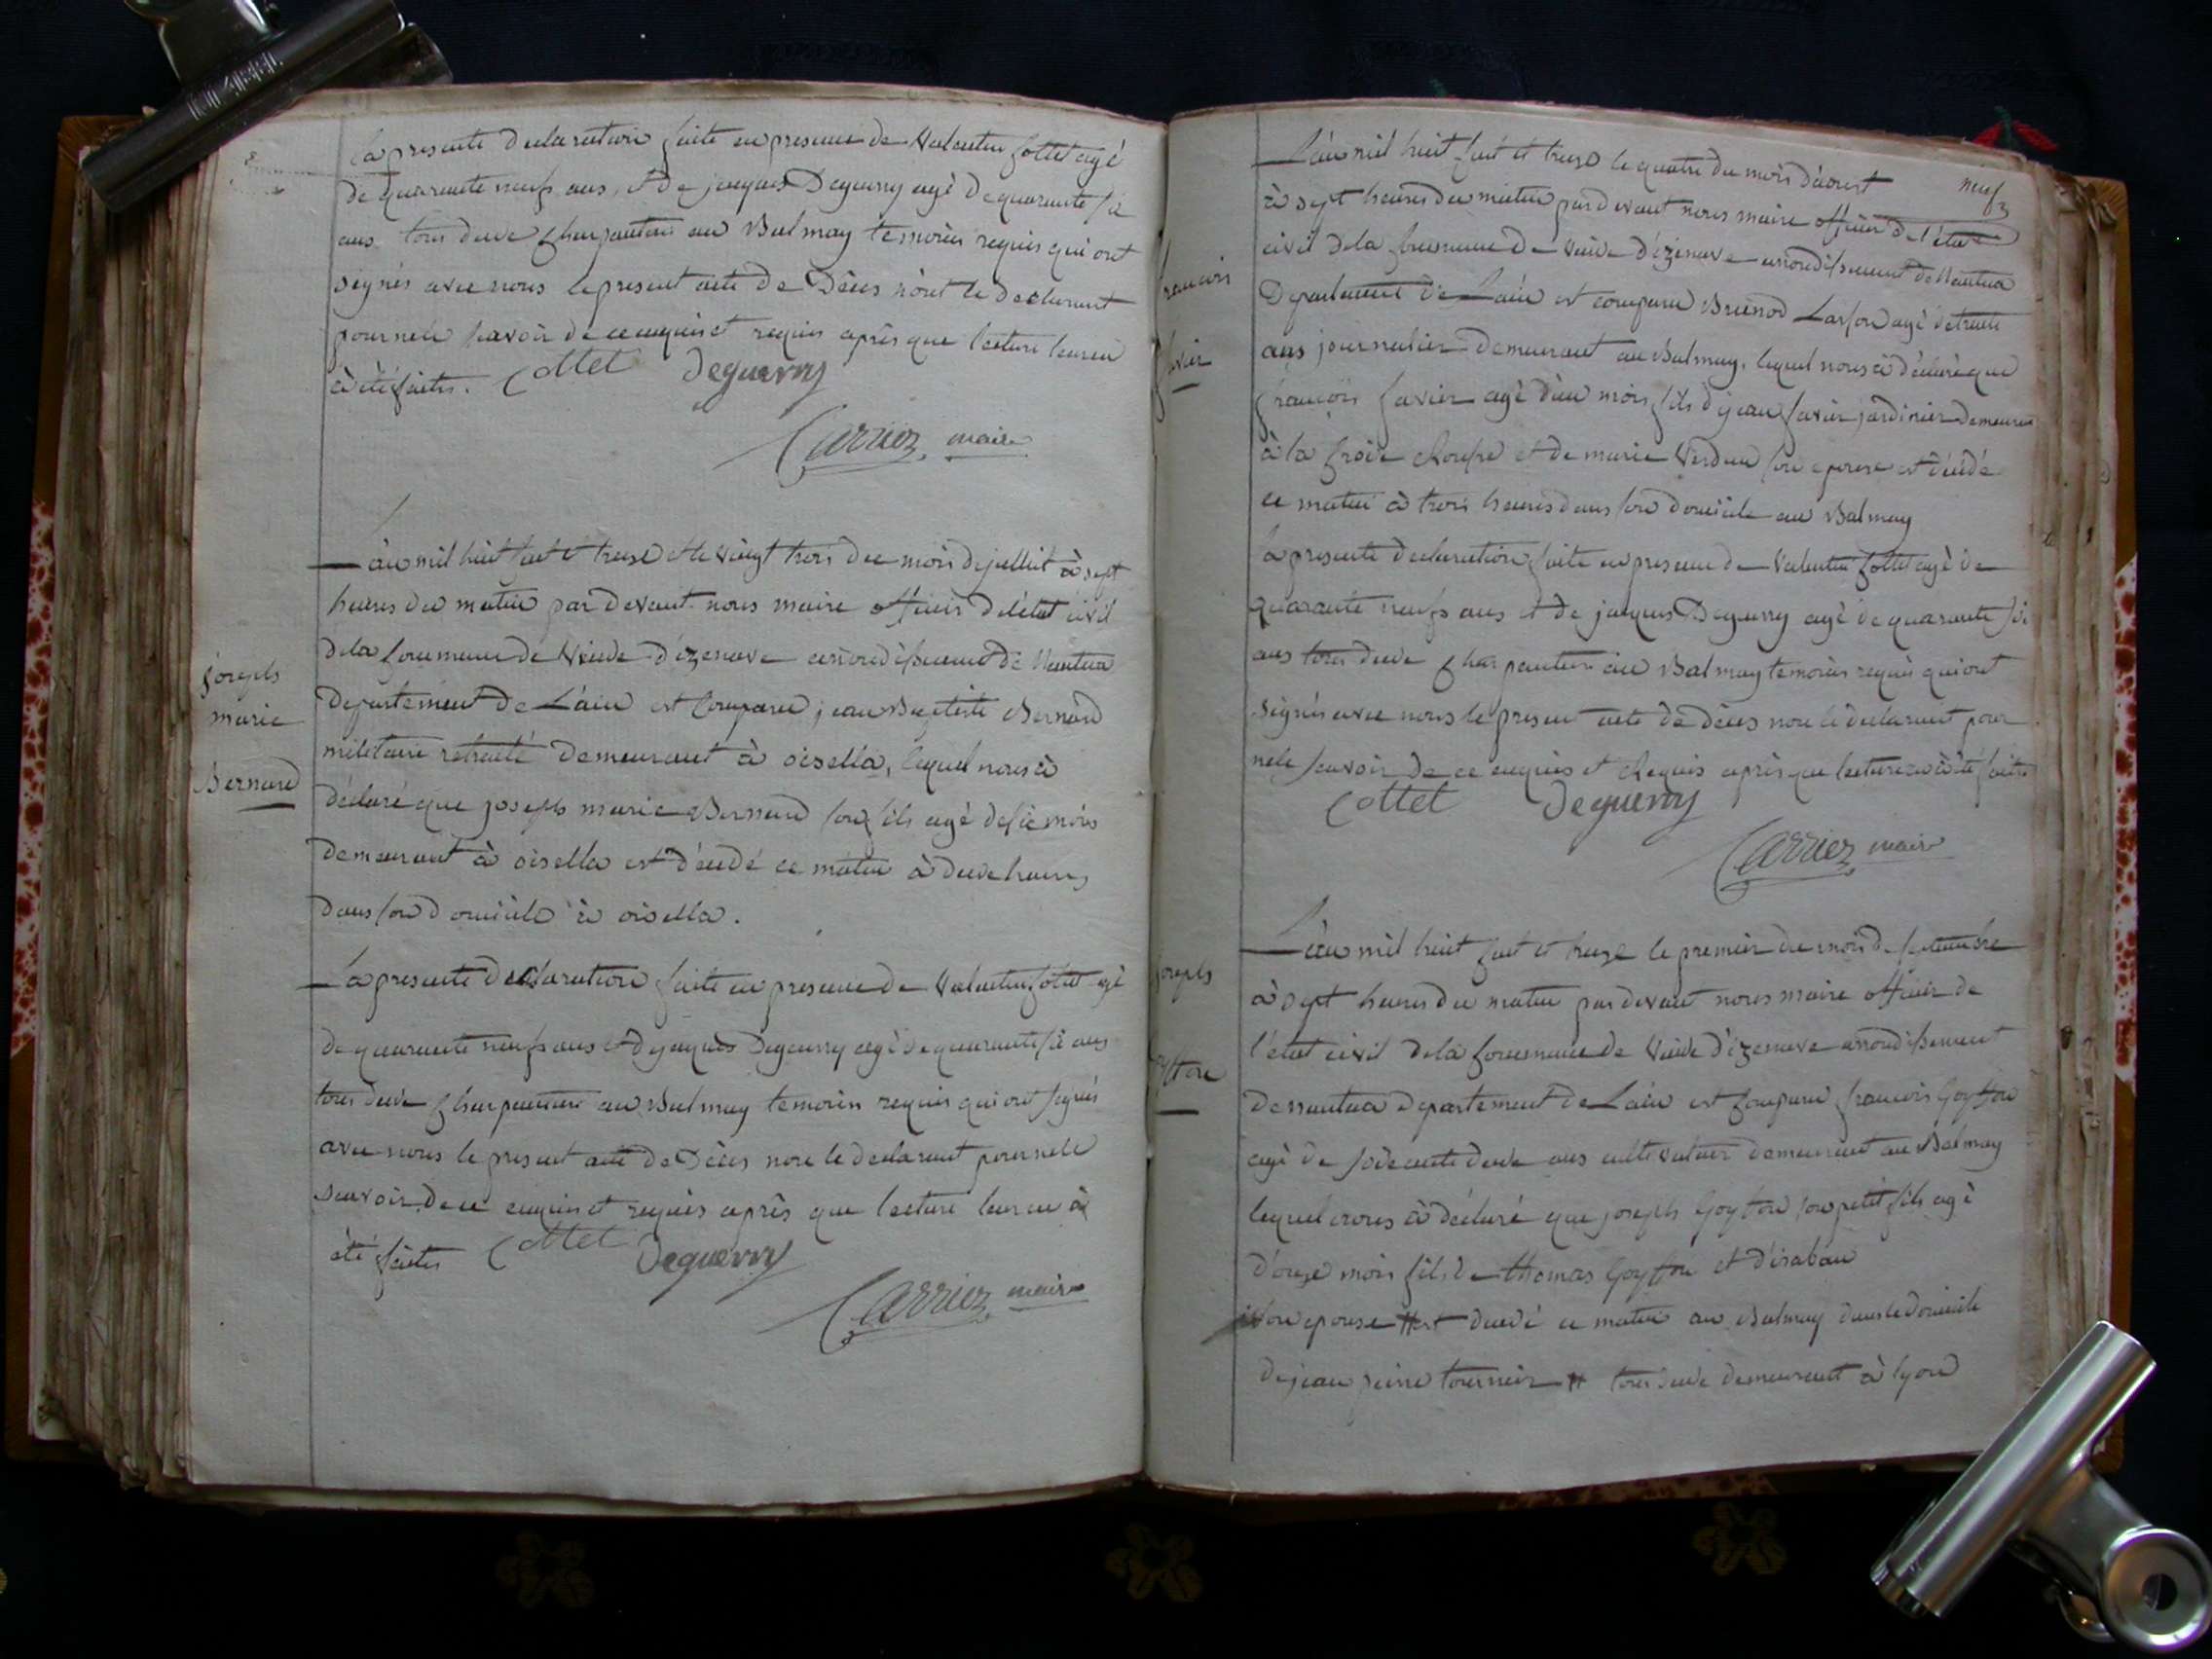 la presente declaration faite en presence de Valentin Cottet agé
de quarante neufs ans, et de jaques Deguerry agé de quarante sie
ans tous deue Charpentiers au Balmay temoins requis qui ont
signés avec nous le present acte de Déces nont le declarant
pour nele savoir de ce enquis et requis après que lecture leur en
à été faites. Cottet Deguerry
Carrier maire
Lân mil huit Cent et treize et le vingt trois du mois de juillit à sept
heures du matin par devant nous maire officier de létat civil
dela Commune de Vieude d'izenave arrondissement de Nantua
Departement de Láin est Comparu jean Baptiste Bernard
militaire retraité demeurant à oisella, lequel nous à
déclaré que joseph marie Bernard son fils agé de sie mois
demeurant à oisella est décedé ce matin à deue heures
dans son domicile à oisella.
La presente declaration faite en presence de Valentin Cottet agé
de quarante neufs ans et de jaques Deguerry agé de quarante sie ans
tous deue Charpentiers au Balmay temoins requis qui ont signés
avec nous le present acte de Déces non le declarant pour nele
savoir de ce enquis et requis après que lecture leur en à
été faites Cottet Deguerry
Carrier maire
joseph
marie
Bernard
neuf
Lân mil huit Cent et treize le quatre du mois d'aoust
à sept heures du matin pardevant nous maire officier de l'état
civil dela Commune de Vieude d'izenave arrondissement de Nantua
Departement de Láin est comparu Brunod Larson agé de trente
ans journalier demeurant au Balmay, lequel nous à déclaré que
françois favier agé d'un mois fils de jean favier jardinier demeurant
à la Croix Rousse et de marie Verdun son epouse est décédé
ce matin à trois heures dans son domicile au Balmay
la presente declaration faite en presence de Valentin Cottet agé de
quarante neufs ans et de jaques Deguerry agé de quarante sie
ans tous deue Charpentiers au Balmay temoins requis qui ont
signés avec nous le present acte de déces non le declarant pour
nele savoir de ce enquis et Requis après que lecture en à été faites
Cottet Deguerry
Carrier maire
françois
favier
Lân mil huit Cent et treize le premier du mois de septembre
à sept heures du matin par devant nous maire officier de
l'état civil dela Commune de Vieude d'izenave arrondissement
de nantua departement de Láin est Comparu françois Goyffon
agé de soiecente deue ans cultivateur demeurant au Balmay
lequel nous à déclaré que joseph Goyffon son petit fils agé
d'onze mois fils de thomas Goyffon et d'isabau
son epouse # est decedé ce matin au Balmay dans le domicile
de jean pierre tournier # tous deue demeurant à lyon
joseph